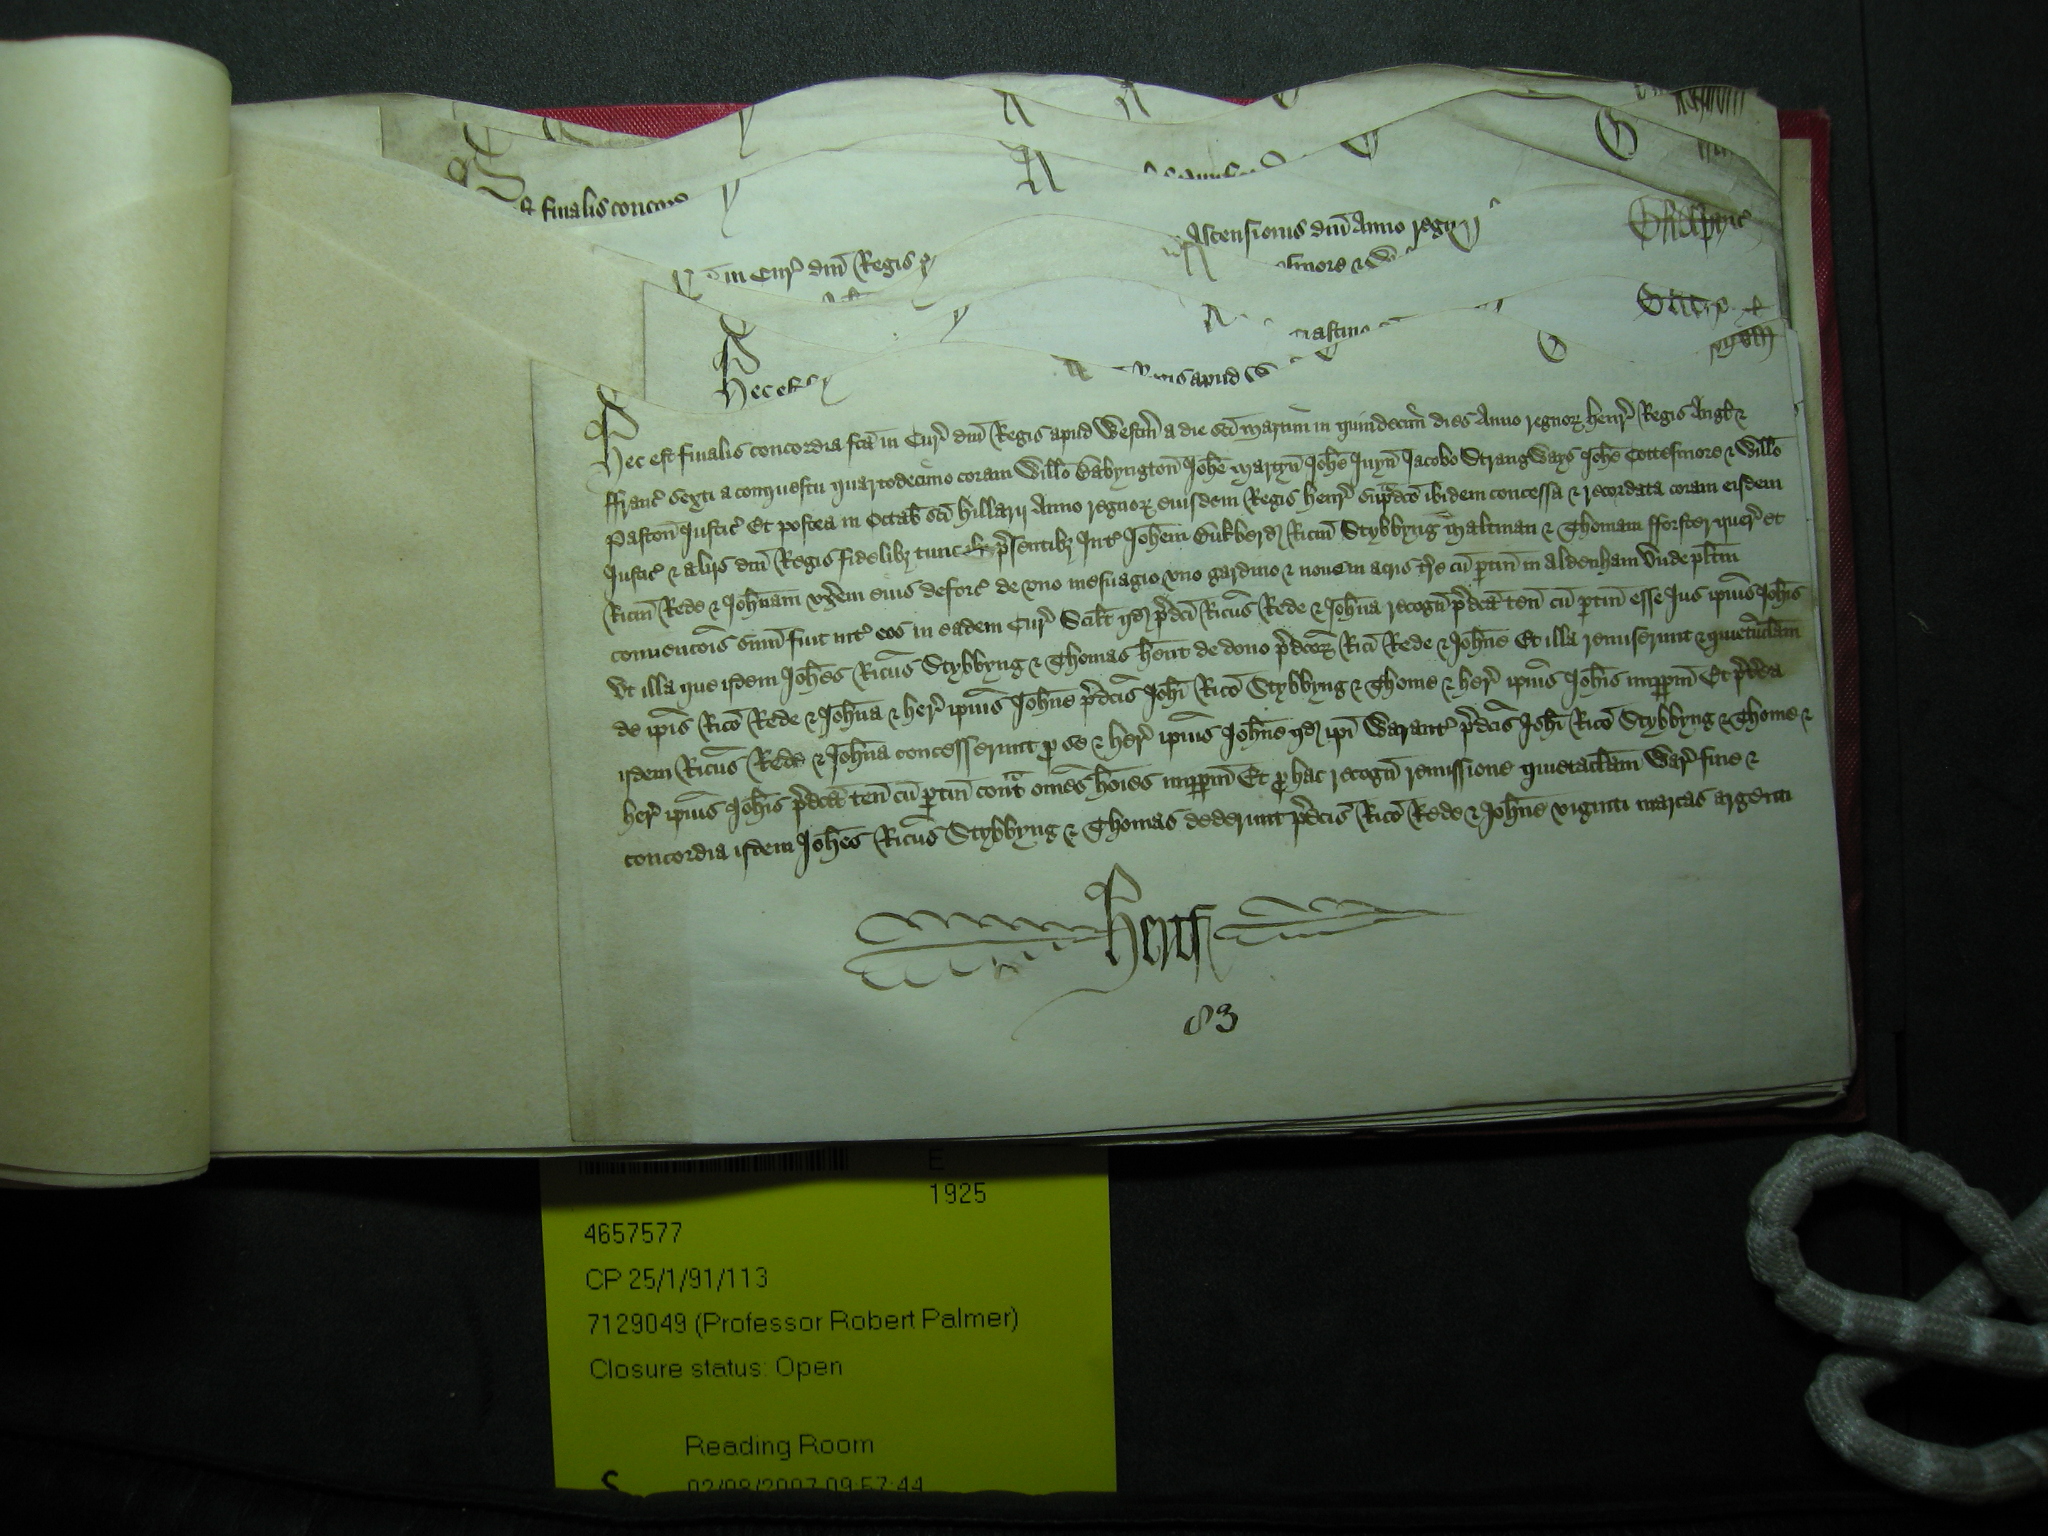 & finalis concor
in Cur᷒ dn̄i Regis
Ascensionis dn̄i Anno regn
Hec est
Hec est finalis concordia fc̄a in Cur᷒ dn̄i Regis apud Westm̄ a die sc̄i Martini in quindecim dies Anno regnoꝝ Henr᷒ Regis Angl᷒ &
ffranc᷒ sexti a conquestu quartodecimo coram Wiłło Babyngton̄ Joħe Martyn̄ Joħe Juyn̄ Jacobo Strangways Joħe Cottesmore & Wiłło
Paston̄ Justic᷒ Et postea in Octab̄ sc̄i Hillarij Anno regnoꝝ eiusdem Regis Henr᷒ sup̄dc̄o ibidem concessa & recordata coram eisdem
Justic᷒ & alijs dn̄i Regis fidelibȝ tunc ibi p̄sentibȝ Int᷒ Joħem Dukberd Ric̄m Stybbyng Maltman & Thomam fforster quer᷒ et
Ric̄m Rede & Joħnam vx̄em eius deforc᷒ de vno mesuagio vno gardino & nouem acris t̄re cū p̄tin̄ in Aldenham Vnde pl̄itm
conuenc̄ois sum̄ fuit int᷒ eos in eadem Cur᷒ Scil̄t qđ p̄dc̄i Ric̄us Rede & Joħna recogn̄ p̄dc̄a ten̄ cū p̄tin̄ esse Jus ip̄ius Joħis
Vt illa que ijdem Joħes Ric̄us Stybbyng & Thomas hēnt de dono p̄dc̄oꝝ Ric̄i Rede & Joħne Et illa remiserunt & quietūclam̄
de ip̄is Ric̄o Rede & Joħna & her᷒ ip̄ius Joħne p̄dc̄is Joħi Ric̄o Stybbyng & Thome & her᷒ ip̄ius Joħis imp̄p̄m Et p̄terea
ijdem Ric̄us Rede & Joħna concesserunt ꝑ se & her᷒ ip̄ius Joħne qđ ip̄i Warant᷒ p̄dc̄is Joħi Ric̄o Stybbyng & Thome &
her᷒ ip̄ius Joħis p̄dc̄a ten̄ cū p̄tin̄ cont̄ om̄es hōies imp̄p̄m Et ꝑ hac recogn̄ remissione quietaclam̄ War᷒ fine &
concordia ijdem Joħes Ric̄us Stybbyng & Thomas dederunt p̄dc̄is Ric̄o Rede & Joħne viginti marcas argenti
Hertf
83
E
1925
4657577
CP 25/1/91/113
7129049 (Professor Robert Palmer)
Closure status: Open
Reading Room
S
02/08/2007 09:57:44